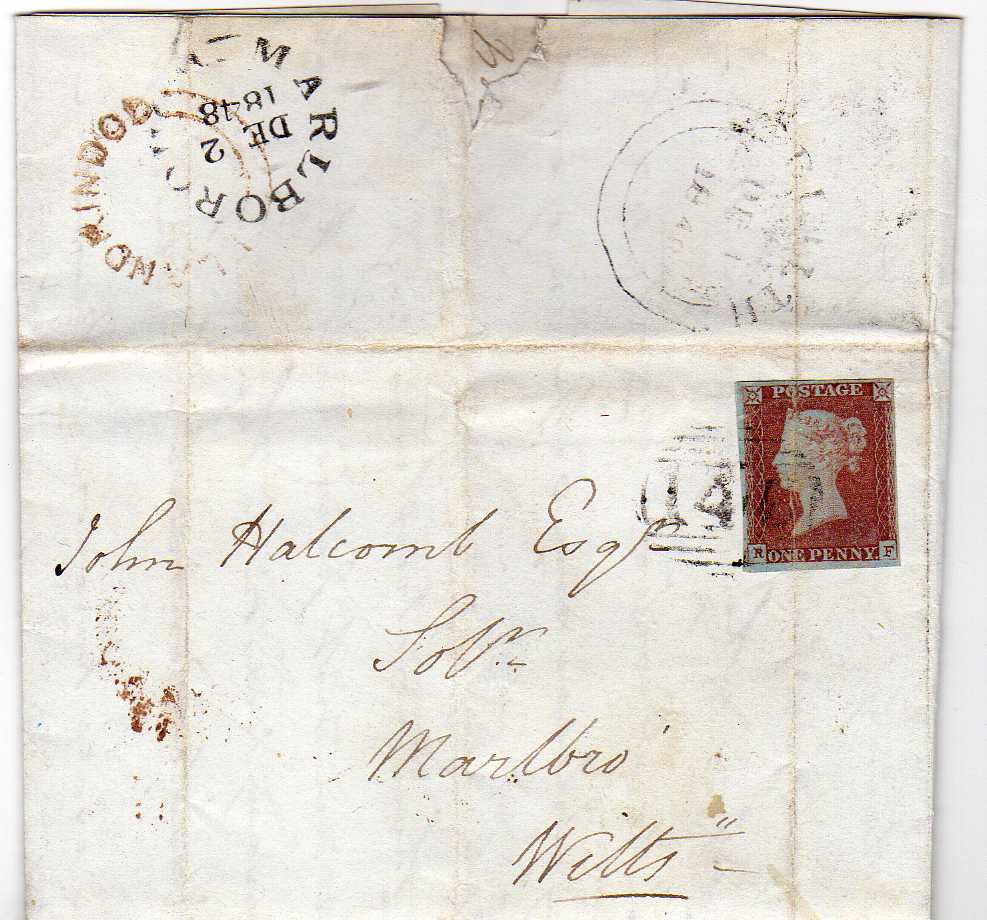 MARLBOROUGH
DE 2
1848
POSTAGE
R ONE PENNY F
John Halcomb Esqr
Solr
Marlbro'
Wilts"